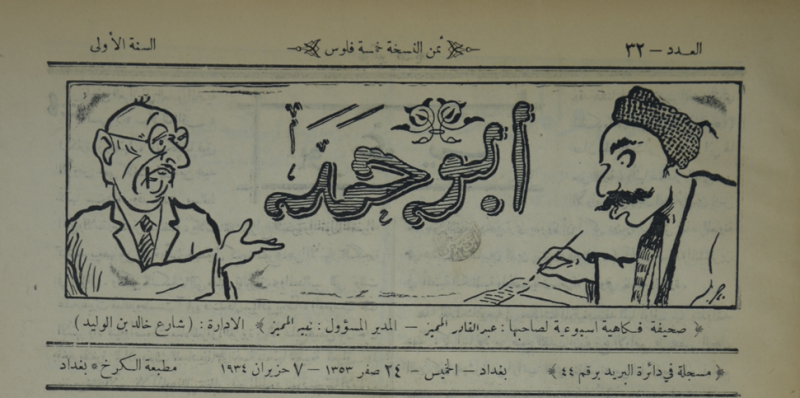 العدد – ٣٢
ثمن النسخة خمسة فلوس
السنة الأولى
أبو حمد
صحيفة فكاهية اسبوعية لصاحبها : عبد القادر المميز – المدير المسؤول : المميز الادارة : ( شارع خالد بن الوليد )
مسجلة في دائرة البريد برقم ٤٤
بغداد – الخميس – ٢٤ صفر ١٣٥٣ – ٧ حزيران ١٩٣٤
مطبعة الكرخ * بغداد